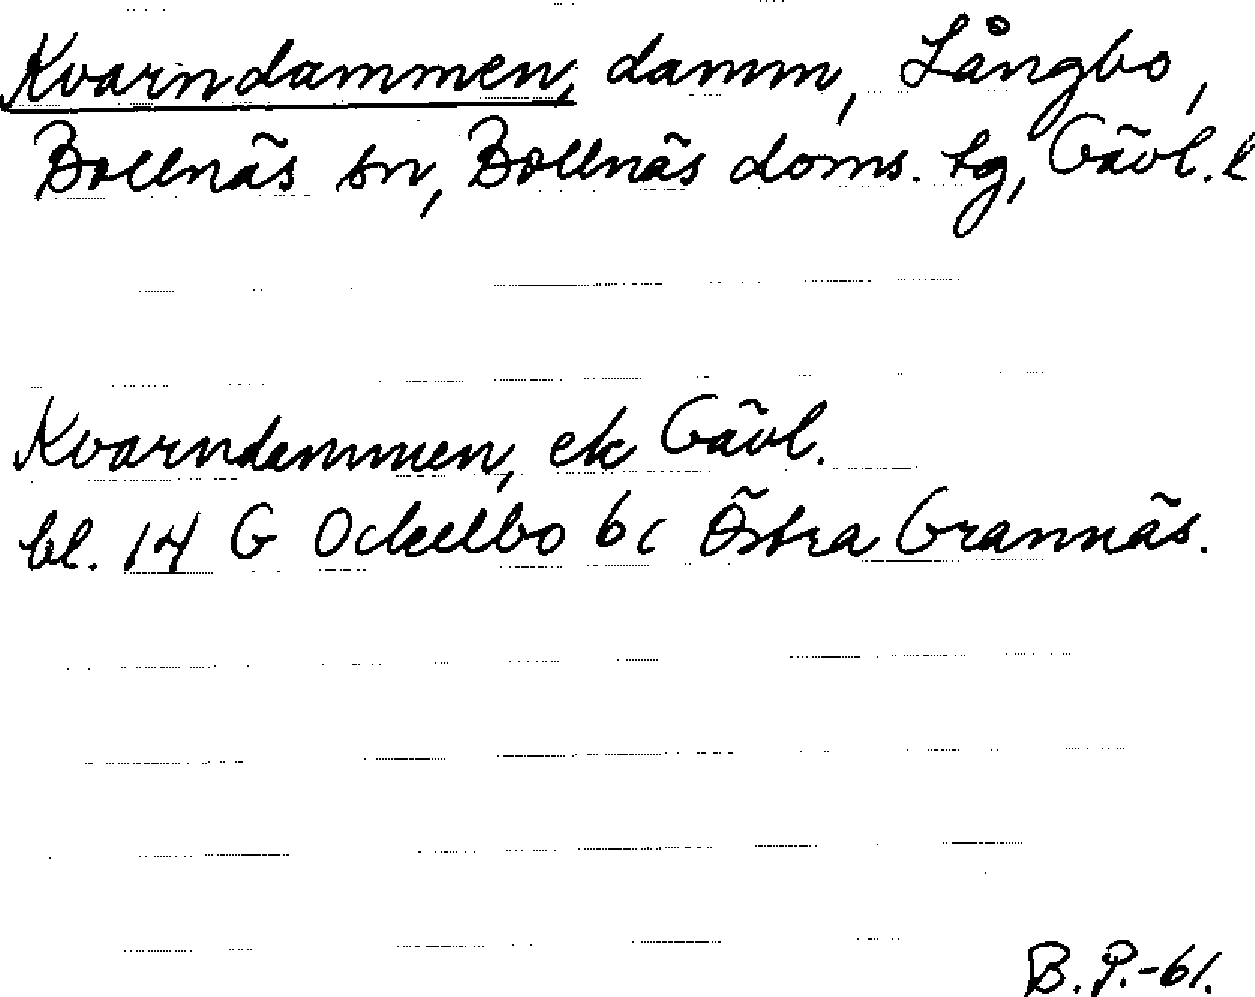 Kvarndammen, damm, Långbo,
Bollnäs sn, Bollnäs doms. tg, Gävl. l
Kvarndammen, ek Gävl.
bl. 14 G Ockelbo 6c Östra Grannäs.
B. P.-61.